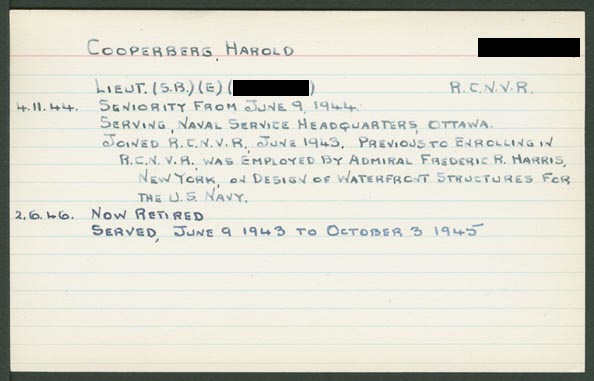 COOPERBERG, HAROLD
LIEUT. (S.B.) (E) ( ) R.C.N.V.R.
4.11.44. SENIORITY FROM JUNE 9, 1944.
SERVING, NAVAL SERVICE HEADQUARTERS, OTTAWA.
JOINED R.C.N.V.R., JUNE 1943. PREVIOUS TO ENROLLING IN
R.C.N.V.R. WAS EMPLOYED BY ADMIRAL FREDERIC R. HARRIS,
NEW YORK, ON DESIGN OF WATERFRONT STRUCTURES FOR
THE U.S. NAVY.
2.6.46. NOW RETIRED
SERVED, JUNE 9 1943 TO OCTOBER 3 1945